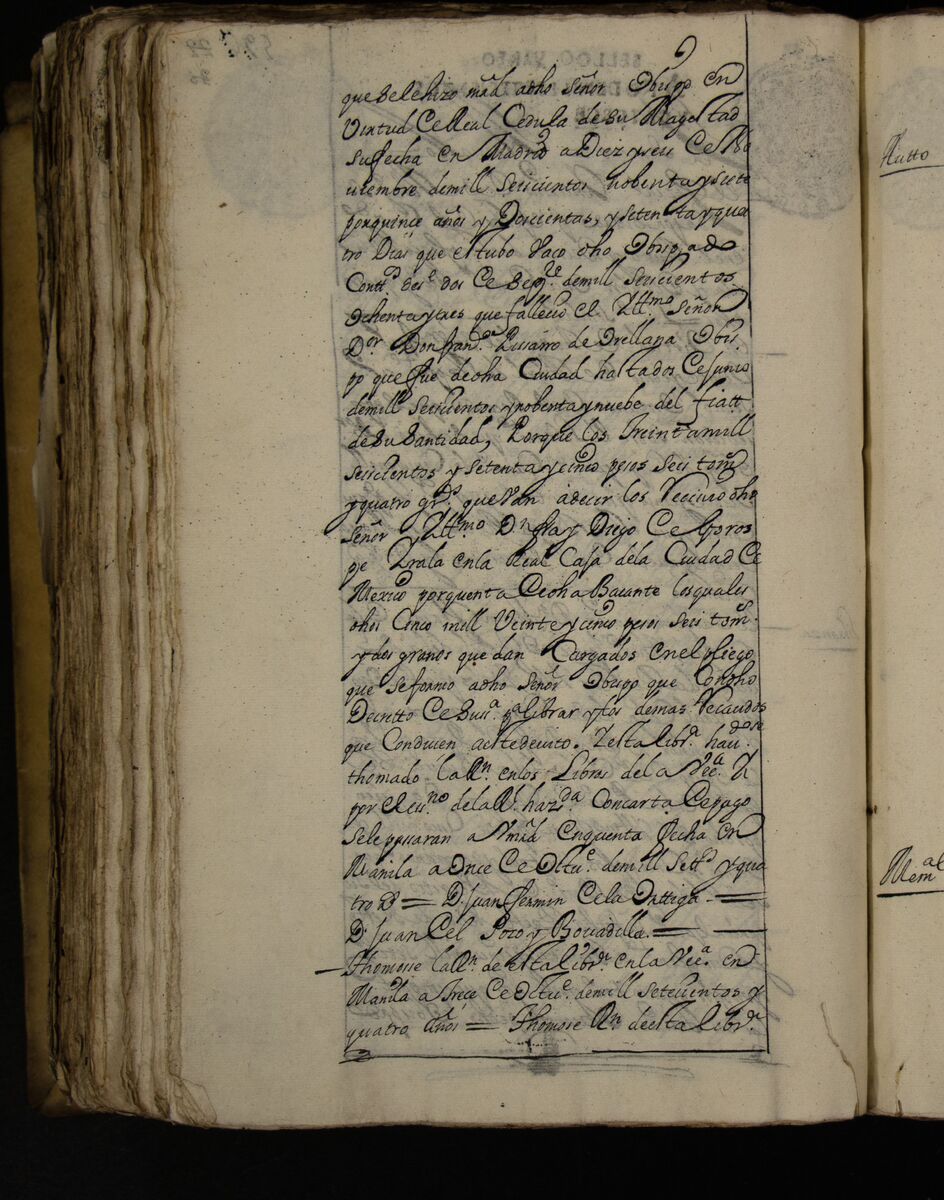 que se le hizo mrd. adho señor Obispo en
Virtud Ce Real Cedula de su Magestad
su fecha en Madrid a Diez y seis Ce No
uiembre demill seisicientos nobenta y siete
por quince años y Doscientas, y setenta y qua
tro Dias que estubo Vaco dho Obispado
Contt.os desᵉ dos Ce Sepᵗᵉ. demill seiscientos
ochenta y tres que fallecio el Ylltᵐᵒ. Señor
Dᵒʳ. Don franᶜᵒ. Pissarro de Orellana Obis
po que fue de dha Ciudad hasta dos Ce Junio
demill seisicientos y nobenta y nuebe del fiatt
de su Santidad, Porque los treinta mill
seiscientos y setenta y cinco pesos seis toms.
y quatro grˢ. que Van a decir los Veciuio dho
señor Ylltᵐᵒ. Dⁿ fray Diego Ce Goros
pe Yrala en la Real Caja dela Ciudad Ce
Mexico por quenta De dha Bacante los quales
dhos Cinco mill Veinte y cinco pesos seis toms.
y dos granos quedan Cargados en el pliego
que se formo adho señor Obispo que Con dho
Decretto Ce Susᵃ. pᵃ librar y los demas Recaudos
que Conducen a este decreto. Y esta librᵃ. hauᵈᵒse
thomado la Rⁿ. en los Libros dela Rᵉᵉᵃ. Y
por el esⁿᵒ dela Rˡ. hazᵈᵃ Con carta Ce pago
se le pasaran a Vmrd Enquenta fecha en
Manila a Once Ce Octuᵉ. demill settᵒˢ y qua
tro Dˢ = D. Juan fermin Cela Orttiga =
D. Juan Cel Pozo y Bouadilla =
Thomose la Rⁿ. de esta librᵃ. en la Rᵉᵉᵃ. en
Manila a trece Ce Octuᵉ. demill setecientos y
quatro años = Thomose Rⁿ de esta librᵃ.
Autto
Memᵃˡ